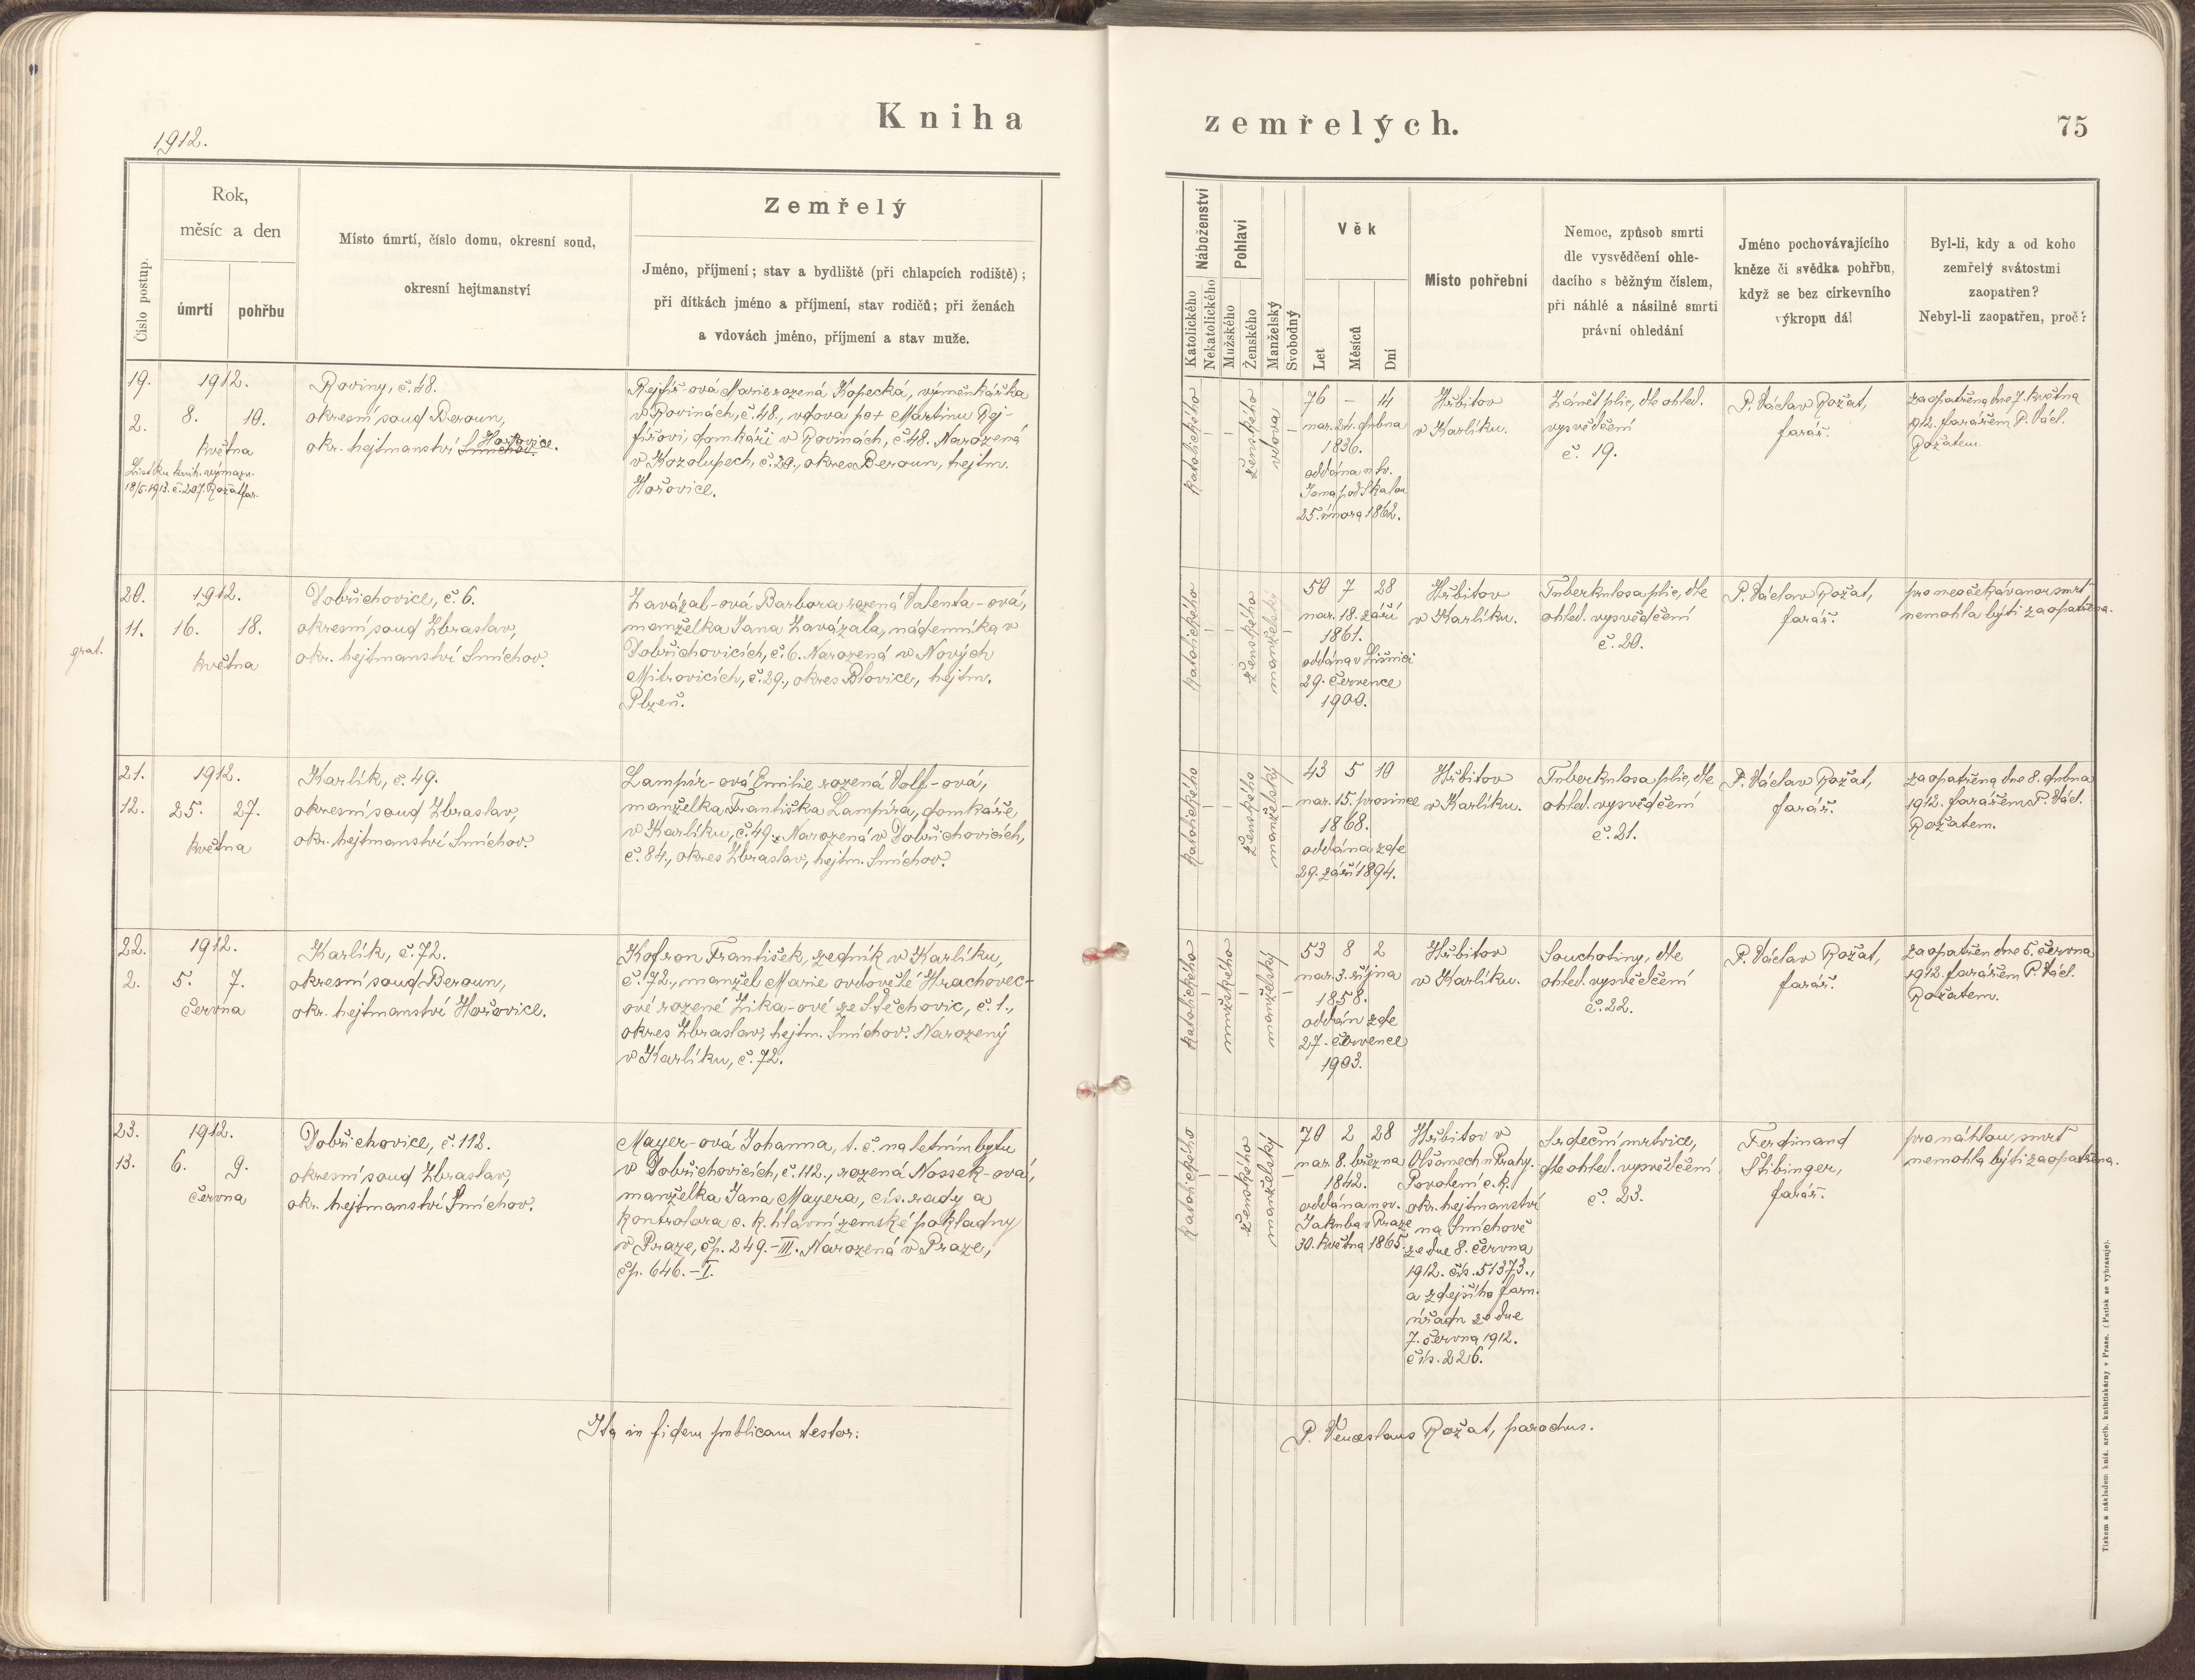 Kniha
zemřelých.
75
1912.
Číslo postup.
Rok,
měsíc a den
úmrtí
pohřbu
Místo úmrtí, číslo domu, okresní soud,
okresní hejtmanství
Zemřelý
Jméno, příjmení; stav a bydliště (při chlapcích rodiště);
při dítkách jméno a příjmení, stav rodičů; při ženách
a vdovách jméno, příjmení a stav muže.
Náboženství
Katolického
Nekatolického
Pohlaví
Mužského
Ženského
Manželský
Svobodný
Věk
Let
Měsíců
Dní
Místo pohřební
Nemoc, způsob smrti
dle vysvědčení ohle-
dacího s běžným číslem,
při náhlé a násilné smrti
právní ohledání
Jméno pochovávajícího
kněze či svědka pohřbu,
když se bez církevního
výkropu dál
Byl-li, kdy a od koho
zemřelý svátostmi
zaopatřen?
Nebyl-li zaopatřen, proč?
19.
2.
1912.
8. 10.
května
18/5. 1913. č. 207. Rožat far.
Roviny, č. 48.
okresní soud Beroun,
okr. hejtmanství Smíchov Hořovice.
Rejfíř-ová Marie rozená Kopecká, výměnkářka
v Rovinách, č. 48., vdova po + Martinu Rej-
fířovi, domkáři v Rovinách, č. 48. Narozená
v Kozolupech, č. 20., okres Beroun, hejtm.
Hořovice.
katolického
–
–
ženského
vdova
–
76 – 14
nar. 24. dubna
1836.
oddána u sv.
Jana pod Skalou
25. února 1862.
Hřbitov
v Karlíku.
Zánět plic, dle ohled.
vysvědčení
č. 19.
P. Václav Rožat,
farář.
zaopatřena dne 7. května
1912. farářem P. Václ.
Rožatem.
grat.
20.
11.
1912.
16. 18.
května
Dobřichovice, č. 6.
okresní soud Zbraslav,
okr. hejtmanství Smíchov.
Zavázal-ová Barbora rozená Valenta-ová,
manželka Jana Zavázala, nádenníka v
Dobřichovicích, č. 6. Narozená v Nových
Mitrovicích, č. 29., okres Blovice, hejtm.
Plzeň.
katolického
–
–
ženského
manželský
–
50 7 28
nar. 18. září
1861.
oddána v Líšnici
29. července
1900.
Hřbitov
v Karlíku.
Tuberkulosa plic, dle
ohled. vysvědčení
č. 20.
P. Václav Rožat,
farář.
pro neočekávanou smrt
nemohla býti zaopatřena.
21.
12.
1912.
25. 27.
května
Karlík, č. 49.
okresní soud Zbraslav,
okr. hejtmanství Smíchov.
Lampír-ová Emilie rozená Volf-ová,
manželka Františka Lampíra, domkáře
v Karlíku, č. 49. Narozená v Dobřichovicích,
č. 84., okres Zbraslav, hejtm. Smíchov.
katolického
–
–
ženského
manželský
–
43 5 10
nar. 15. prosince
1868.
oddána zde
29. září 1894.
Hřbitov
v Karlíku.
Tuberkulosa plic, dle
ohled. vysvědčení
č. 21.
P. Václav Rožat,
farář.
zaopatřena dne 8. dubna
1912. farářem P. Václ.
Rožatem.
22.
2.
1912.
5. 7.
června
Karlík, č. 72.
okresní soud Beroun,
okr. hejtmanství Hořovice.
Kofron František, zedník v Karlíku,
č. 72., manžel Marie ovdovělé Hrachovec-
ové rozené Zika-ové ze Štěchovic, č. 1.,
okres Zbraslav, hejtm. Smíchov. Narozený
v Karlíku, č. 72.
katolického
–
mužského
–
manželský
–
53 8 2
nar. 3. října
1858.
oddán zde
27. července
1903.
Hřbitov
v Karlíku.
Souchotiny, dle
ohled. vysvědčení
č. 22.
P. Václav Rožat,
farář.
zaopatřen dne 5. června
1912. farářem P. Václ.
Rožatem.
23.
13.
1912.
6. 9.
června
Dobřichovice, č. 112.
okresní soud Zbraslav,
okr. hejtmanství Smíchov.
Mayer-ová Johanna, t. č. na letním bytu
v Dobřichovicích, č. 112., rozená Nossek-ová,
manželka Jana Mayera, cís. rady a
kontrolora c. k. hlavní zemské pokladny
v Praze, čp. 249.-III. Narozená v Praze,
čp. 646.-I.
katolického
–
–
ženského
manželský
–
70 2 28
nar. 8. března
1842.
oddána u sv.
Jakuba v Praze
30. května 1865.
Hřbitov v
Olšanech u Prahy.
Povolení c. k.
okr. hejtmanství
na Smíchově
ze dne 8. června
1912. čís. 51373.,
a zdejšího farn.
úřadu ze dne
7. června 1912.
čís. 226.
Srdeční mrtvice,
dle ohled. vysvědčení
č. 23.
Ferdinand
Stibinger,
farář.
pro náhlou smrt
nemohla býti zaopatřena.
Ita in fidem publicam testor:
P. Venceslaus Rožat, parochus.
Tiskem a nákladem kníž. arcib. knihtiskárny v Praze. (Patisk se vyhrazuje).